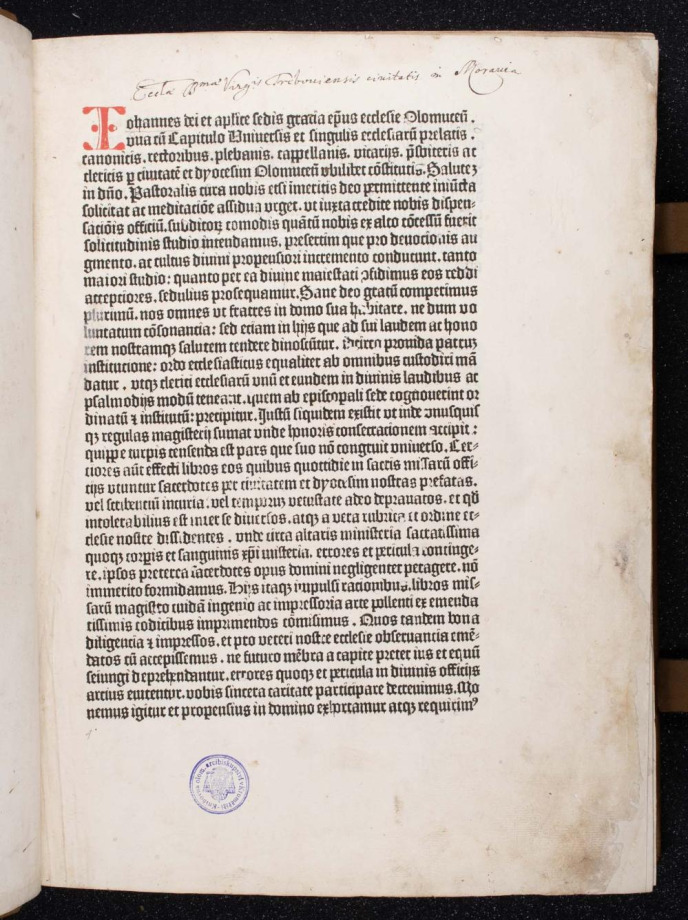 Eccla Bmae Virgis Tribouiensis ciuitatis in Moravia
Iohannes dei et apl̄ice sedis gratia ep̄us ecclesie Olomuceñ .
vna cū Capitulo Vniuersis et singulis ecclesiarū prelatis .
canonicis . rectoribus . plebanis . cappellanis . vicarijs . p̄sbiteris ac
clericis ꝑ ciuitatē et dyocesim Olomuceñ vbilibet cōstitutis. Salutez
in dn̄o . Pastoralis cura nobis etsi īmeritis deo permittente iniūcta
solicitat ac meditaciōe assidua vrget . vt iuxta credite nobis dispen⸗
sacōis officiū . subditoꝝ comodis quātū nobis ex alto cōcessū fuerit
solicitudinis studio intendamus . presertim que pro deuocionis au
gmento . ac cultus diuini propensiori incremento conducunt . tanto
maiori studio : quanto per ea diuine maiestati ꝯfidimus eos reddi
acceptiores . sedulius prosequamur . Sane deo gratū competimus
plurimū . nos omnes vt fratres in domo sua habitare . ne dum vo
luntatum cōsonancia : sed etiam in hijs que ad sui laudem ac hono
rem nostramqꝫ salutem tendere dinoscūtur . Idcirco prouida patrꝫ
institucione : ordo ecclesiasticus equaliter ab omnibus custodiri mā
datur . vtqꝫ clerici ecclesiarū vnū et eundem in diuinis laudibus ac
psalmodijs modū teneant . quem ab episcopali sede cognouerint or
dinatū ⁊ institutū : precipitur . Justū siquidem existit vt inde vnusquis
qꝫ regulas magisterij sumat vnde honoris consecracionem accipit :
quippe turpis censenda est pars que suo nō congruit vniuerso . Cer⸗
ciores aūt effecti libros eos quibus quottidie in sacris missarū offi⸗
cijs vtuntur sacerdotes per ciuitatem et dyocesim nostras prefatas .
vel scribenciū incuria . vel temporū vetustate adeo deprauatos . et qd̄
intolerabilius est inter se diuersos . atqꝫ a vera rubrica et ordine ec⸗
clesie nostre dissidentes . vnde circa altaris ministeria sacratissima
quoqꝫ corpis et sanguinis xp̄i misteria . errores et pericula continge⸗
re . ipsos preterea sacerdotes opus domini negligenter peragere . nō
immerito formidamus . Hijs itaqꝫ impulsi racionibus . libros mis⸗
sarū magistro cuidā ingenio ac impressoria arte pollenti ex emenda
tissimis codicibus imprimendos cōmisimus . Quos tandem bona
diligencia ⁊ impressos . et pro veteri nostre ecclesie obseruancia emē⸗
datos cū accepissemus . ne futuro mēbra a capite preter ius et equū
seiungi deprehendantur . errores quoqꝫ et pericula in diuinis officijs
arcius euitentur . vobis sincera caritate participare decreuimus . Mo
nemus igitur et propensius in domino exhortamur atqꝫ requirimꝰ